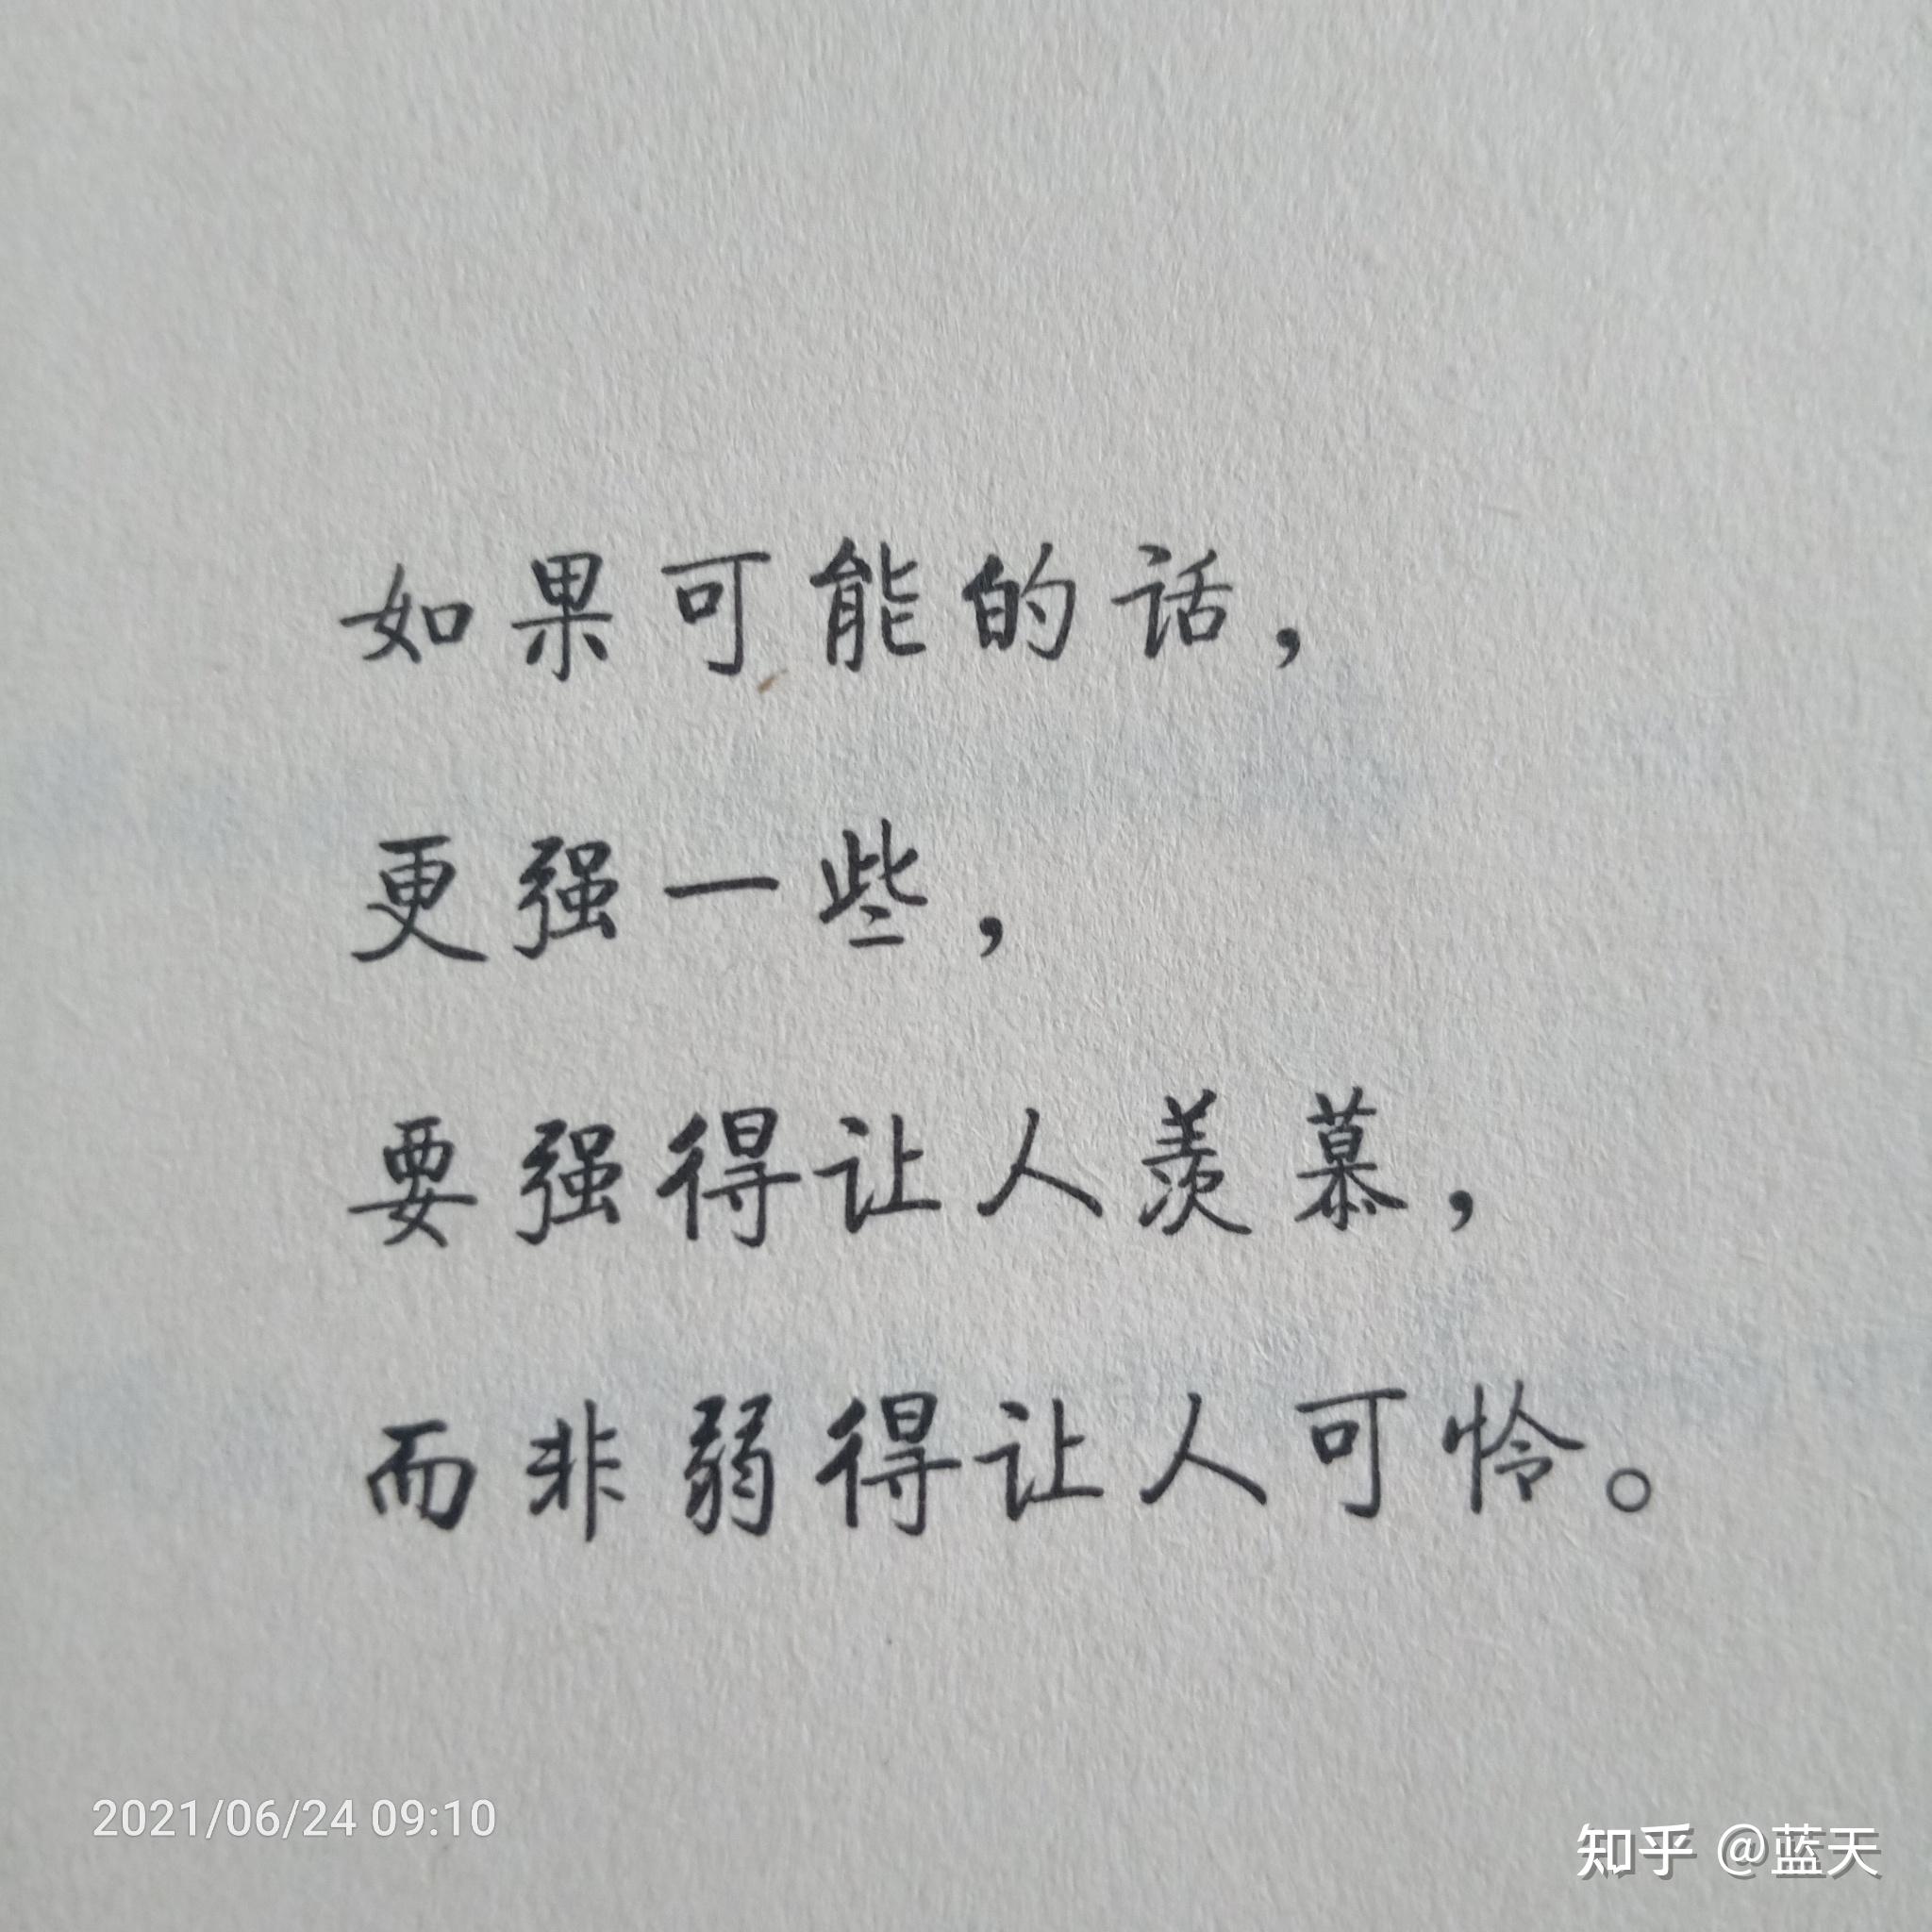 如果可能的话，
更强一些，
要强得让人羡慕，
而非弱得让人可怜。
2021/06/24 09:10
知乎 @蓝天